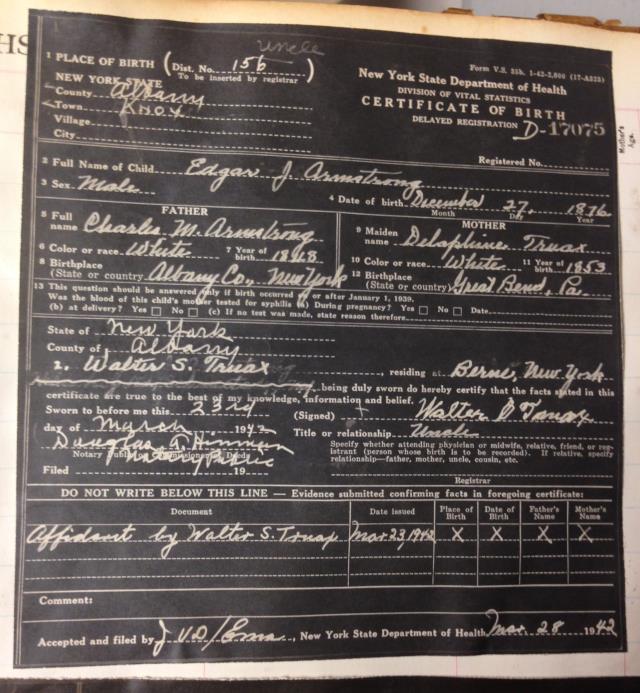 HS
Uncle
1 PLACE OF BIRTH ( Dist. No. 156 )
To be inserted by registrar
NEW YORK STATE
County Albany
Town KNOX
Village
City
Form V.S. 35b. 1-42-3,500 (17-A323)
New York State Department of Health
DIVISION OF VITAL STATISTICS
CERTIFICATE OF BIRTH
DELAYED REGISTRATION D-17075
Mother's Age.
Registered No.
2 Full Name of Child Edgar J. Armstrong
3 Sex Male
4 Date of birth December 27, 1876
Month Day Year
FATHER
5 Full name Charles M. Armstrong
6 Color or race White 7 Year of birth 1848
8 Birthplace (State or country) Albany Co. New York
MOTHER
9 Maiden name Delaphine Truax
10 Color or race White 11 Year of birth 1853
12 Birthplace (State or country) Great Bend, Pa.
13 This question should be answered only if birth occurred on or after January 1, 1939.
Was the blood of this child's mother tested for syphilis (a) During pregnancy? Yes No
(b) at delivery? Yes No (c) If no test was made, state reason therefore Date
State of New York
County of Albany
I, Walter S. Truax residing at Berne, New York
being duly sworn do hereby certify that the facts stated in this
certificate are true to the best of my knowledge, information and belief.
Sworn to before me this 23rd
day of March 1942
Douglas A. Hinman
Notary Public
Filed 19
(Signed) Walter S Truax
Title or relationship Uncle
Specify whether attending physician or midwife, relative, friend, or registrant (person whose birth is to be recorded). If relative, specify relationship—father, mother, uncle, cousin, etc.
Registrar
DO NOT WRITE BELOW THIS LINE — Evidence submitted confirming facts in foregoing certificate:
Document Date issued Place of Birth Date of Birth Father's Name Mother's Name
Affidavit by Walter S. Truax Mar 23, 1942 X X X X
Comment:
Accepted and filed by J VD/Emm, New York State Department of Health Mar. 28 1942